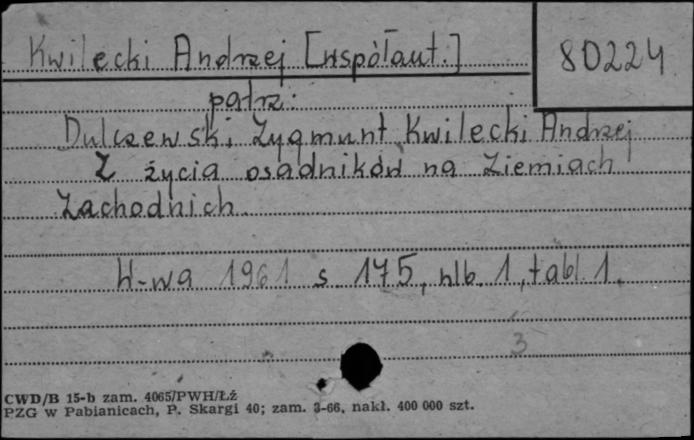 Kwilecki Andrzej [współaut.]
80224
patrz:
Dulczewski Zygmunt Kwilecki Andrzej
Z życia osadników na Ziemiach
Zachodnich.
W-wa 1961 s 175, nlb. 1, tabl 1.
3
CWD/B 15-b zam. 4065/PWH/Łź
PZG w Pabianicach, P. Skargi 40; zam. 3-66. nakł. 400 000 szt.